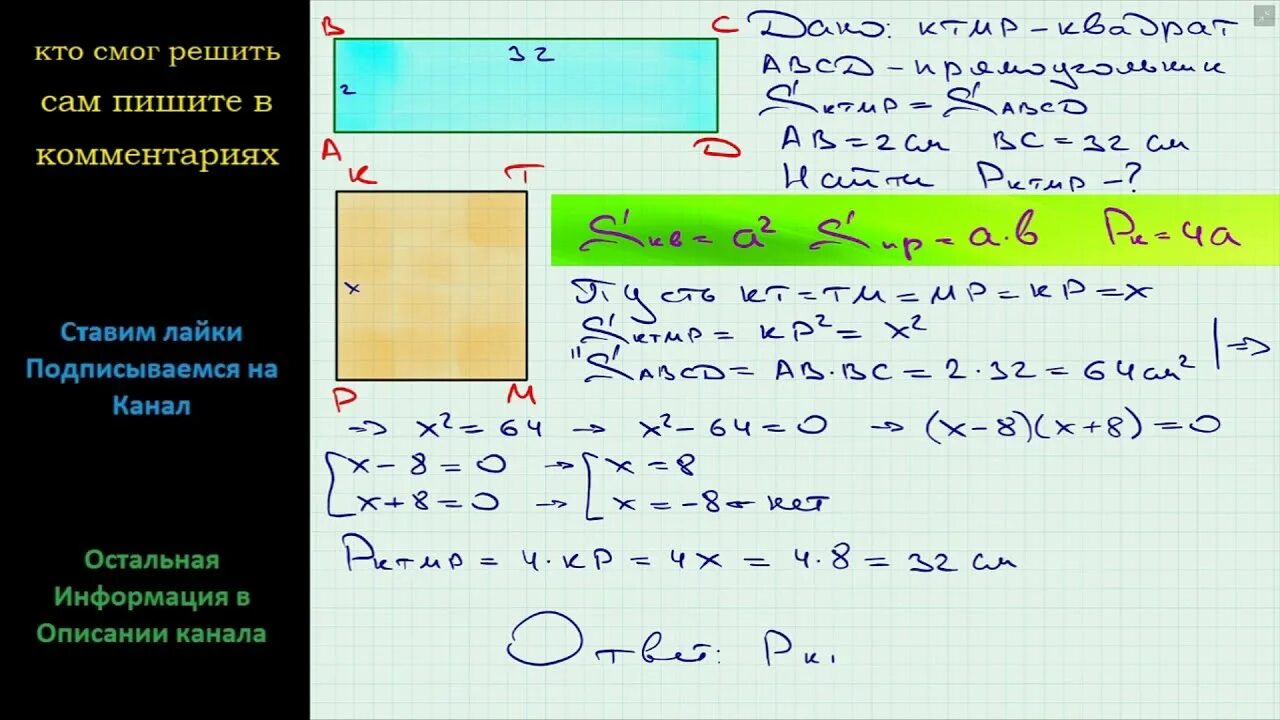 кто смог решить
сам пишите в
комментариях
Ставим лайки
Подписываемся на
Канал
Остальная
Информация в
Описании канала
B C
32
2
A D
K T
x
P M
Дано: KTMP – квадрат
ABCD – прямоугольник
S KTMP = S ABCD
AB = 2 см BC = 32 см
Найти P KTMP – ?
S кв = a² S пр = a·b P к = 4a
Пусть KT = TM = MP = KP = x
S KTMP = KP² = x²
"S ABCD = AB·BC = 2·32 = 64 см² | =>
=> x² = 64 → x² – 64 = 0 → (x–8)(x+8) = 0
[ x – 8 = 0 → [ x = 8
x + 8 = 0 → x = –8 ← нет
P KTMP = 4·KP = 4x = 4·8 = 32 см
Ответ: P к